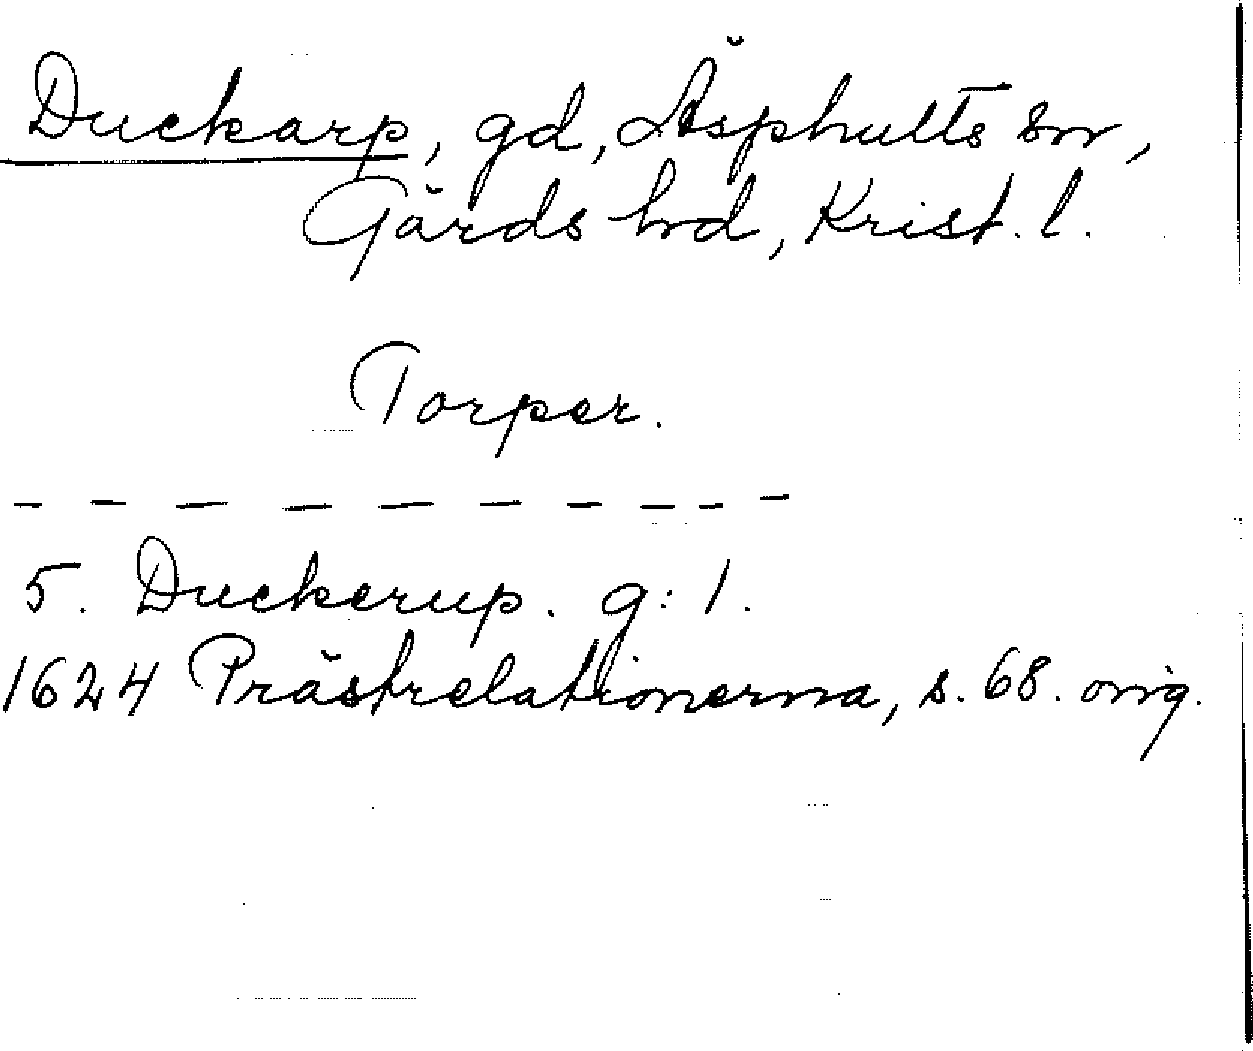 Duckarp, gd, Äsphults sn,
Gärds hrd, Krist. l.
Torper.
5. Duckerup. g: 1.
1624 Prästrelationerna, s. 68. orig.